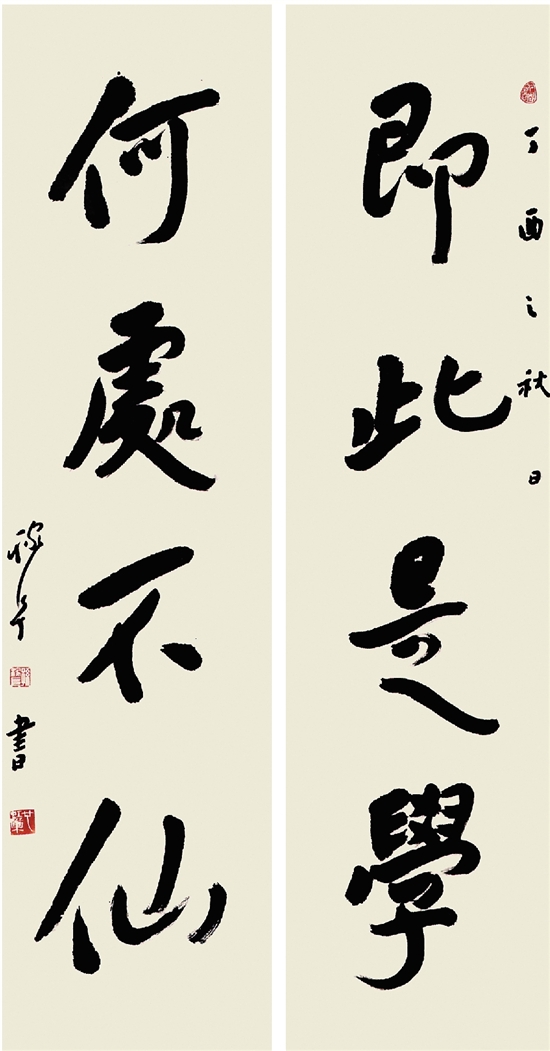 丁酉之秋日
即此是學
何處不仙
書